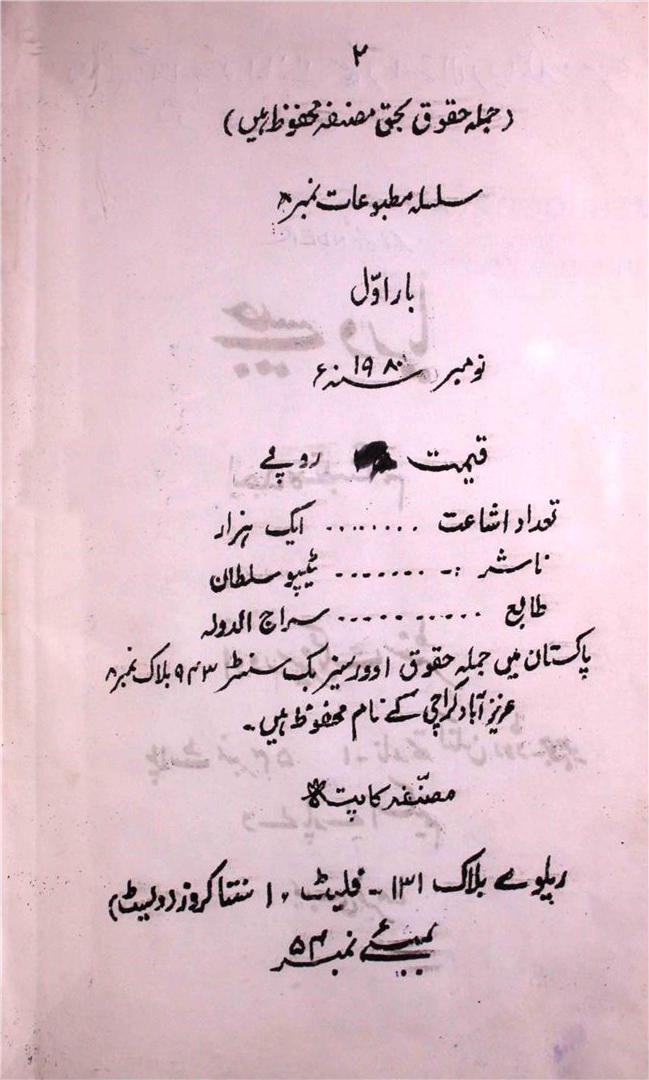 ۲
(جملہ حقوق بحق مصنفہ محفوظ ہیں)
سلسلہ مطبوعات نمبر
بار اوّل
نومبر سنہ ۱۹۸۰ء
قیمت روپے
تعداد اشاعت ........ ایک ہزار
ناشر :- ....... ٹیپو سلطان
طابع .......... سراج الدولہ
پاکستان میں جملہ حقوق اوورسیز بک سنٹر ۹۴۳ بلاک نمبر ۸
عزیز آباد کراچی کے نام محفوظ ہیں۔
مصنّفہ کا پتہ
ریلوے بلاک ۱۳۱ - فلیٹ ۱۰ سنتا کروز (ویسٹ)
بمبئی نمبر ۵۴